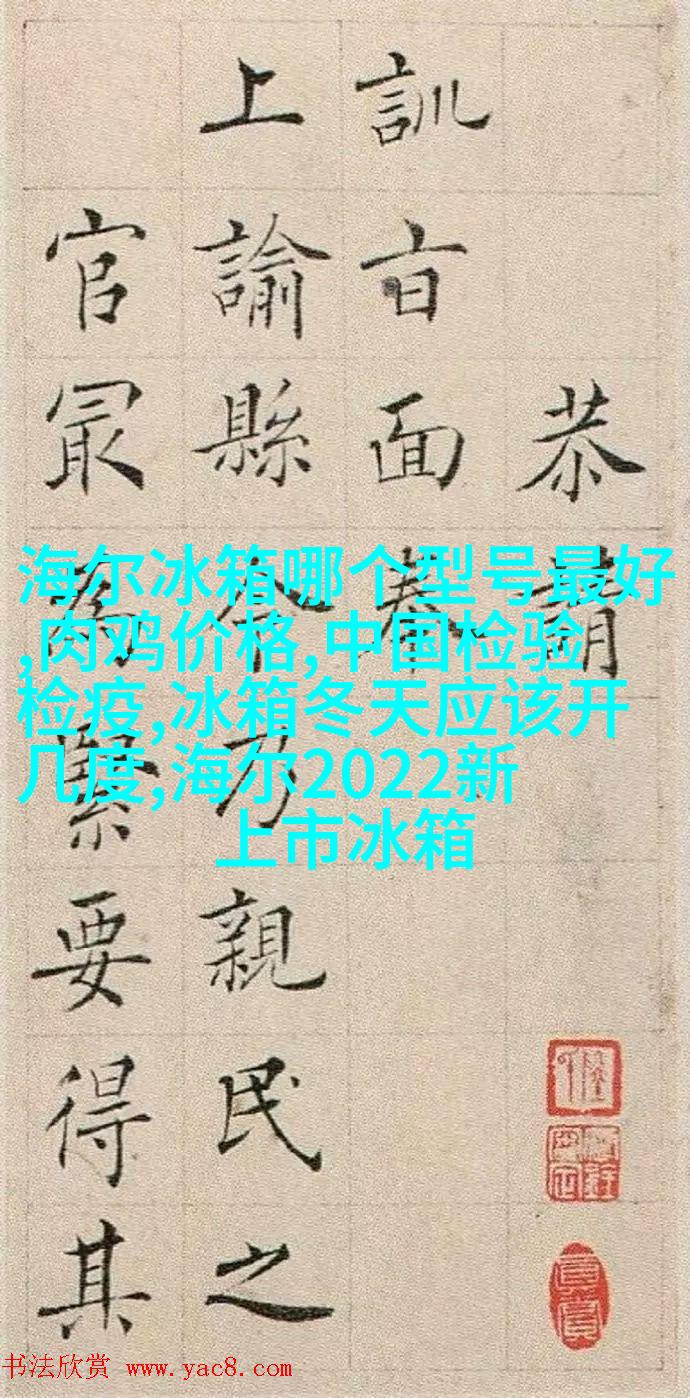 恭請
訓㫖面奉
上諭縣令乃親民之
官冣為緊要得其
海尔冰箱哪个型号最好
,肉鸡价格,中国检验
检疫,冰箱冬天应该开
几度,海尔2022新
上市冰箱
书法欣赏 www.yac8.com